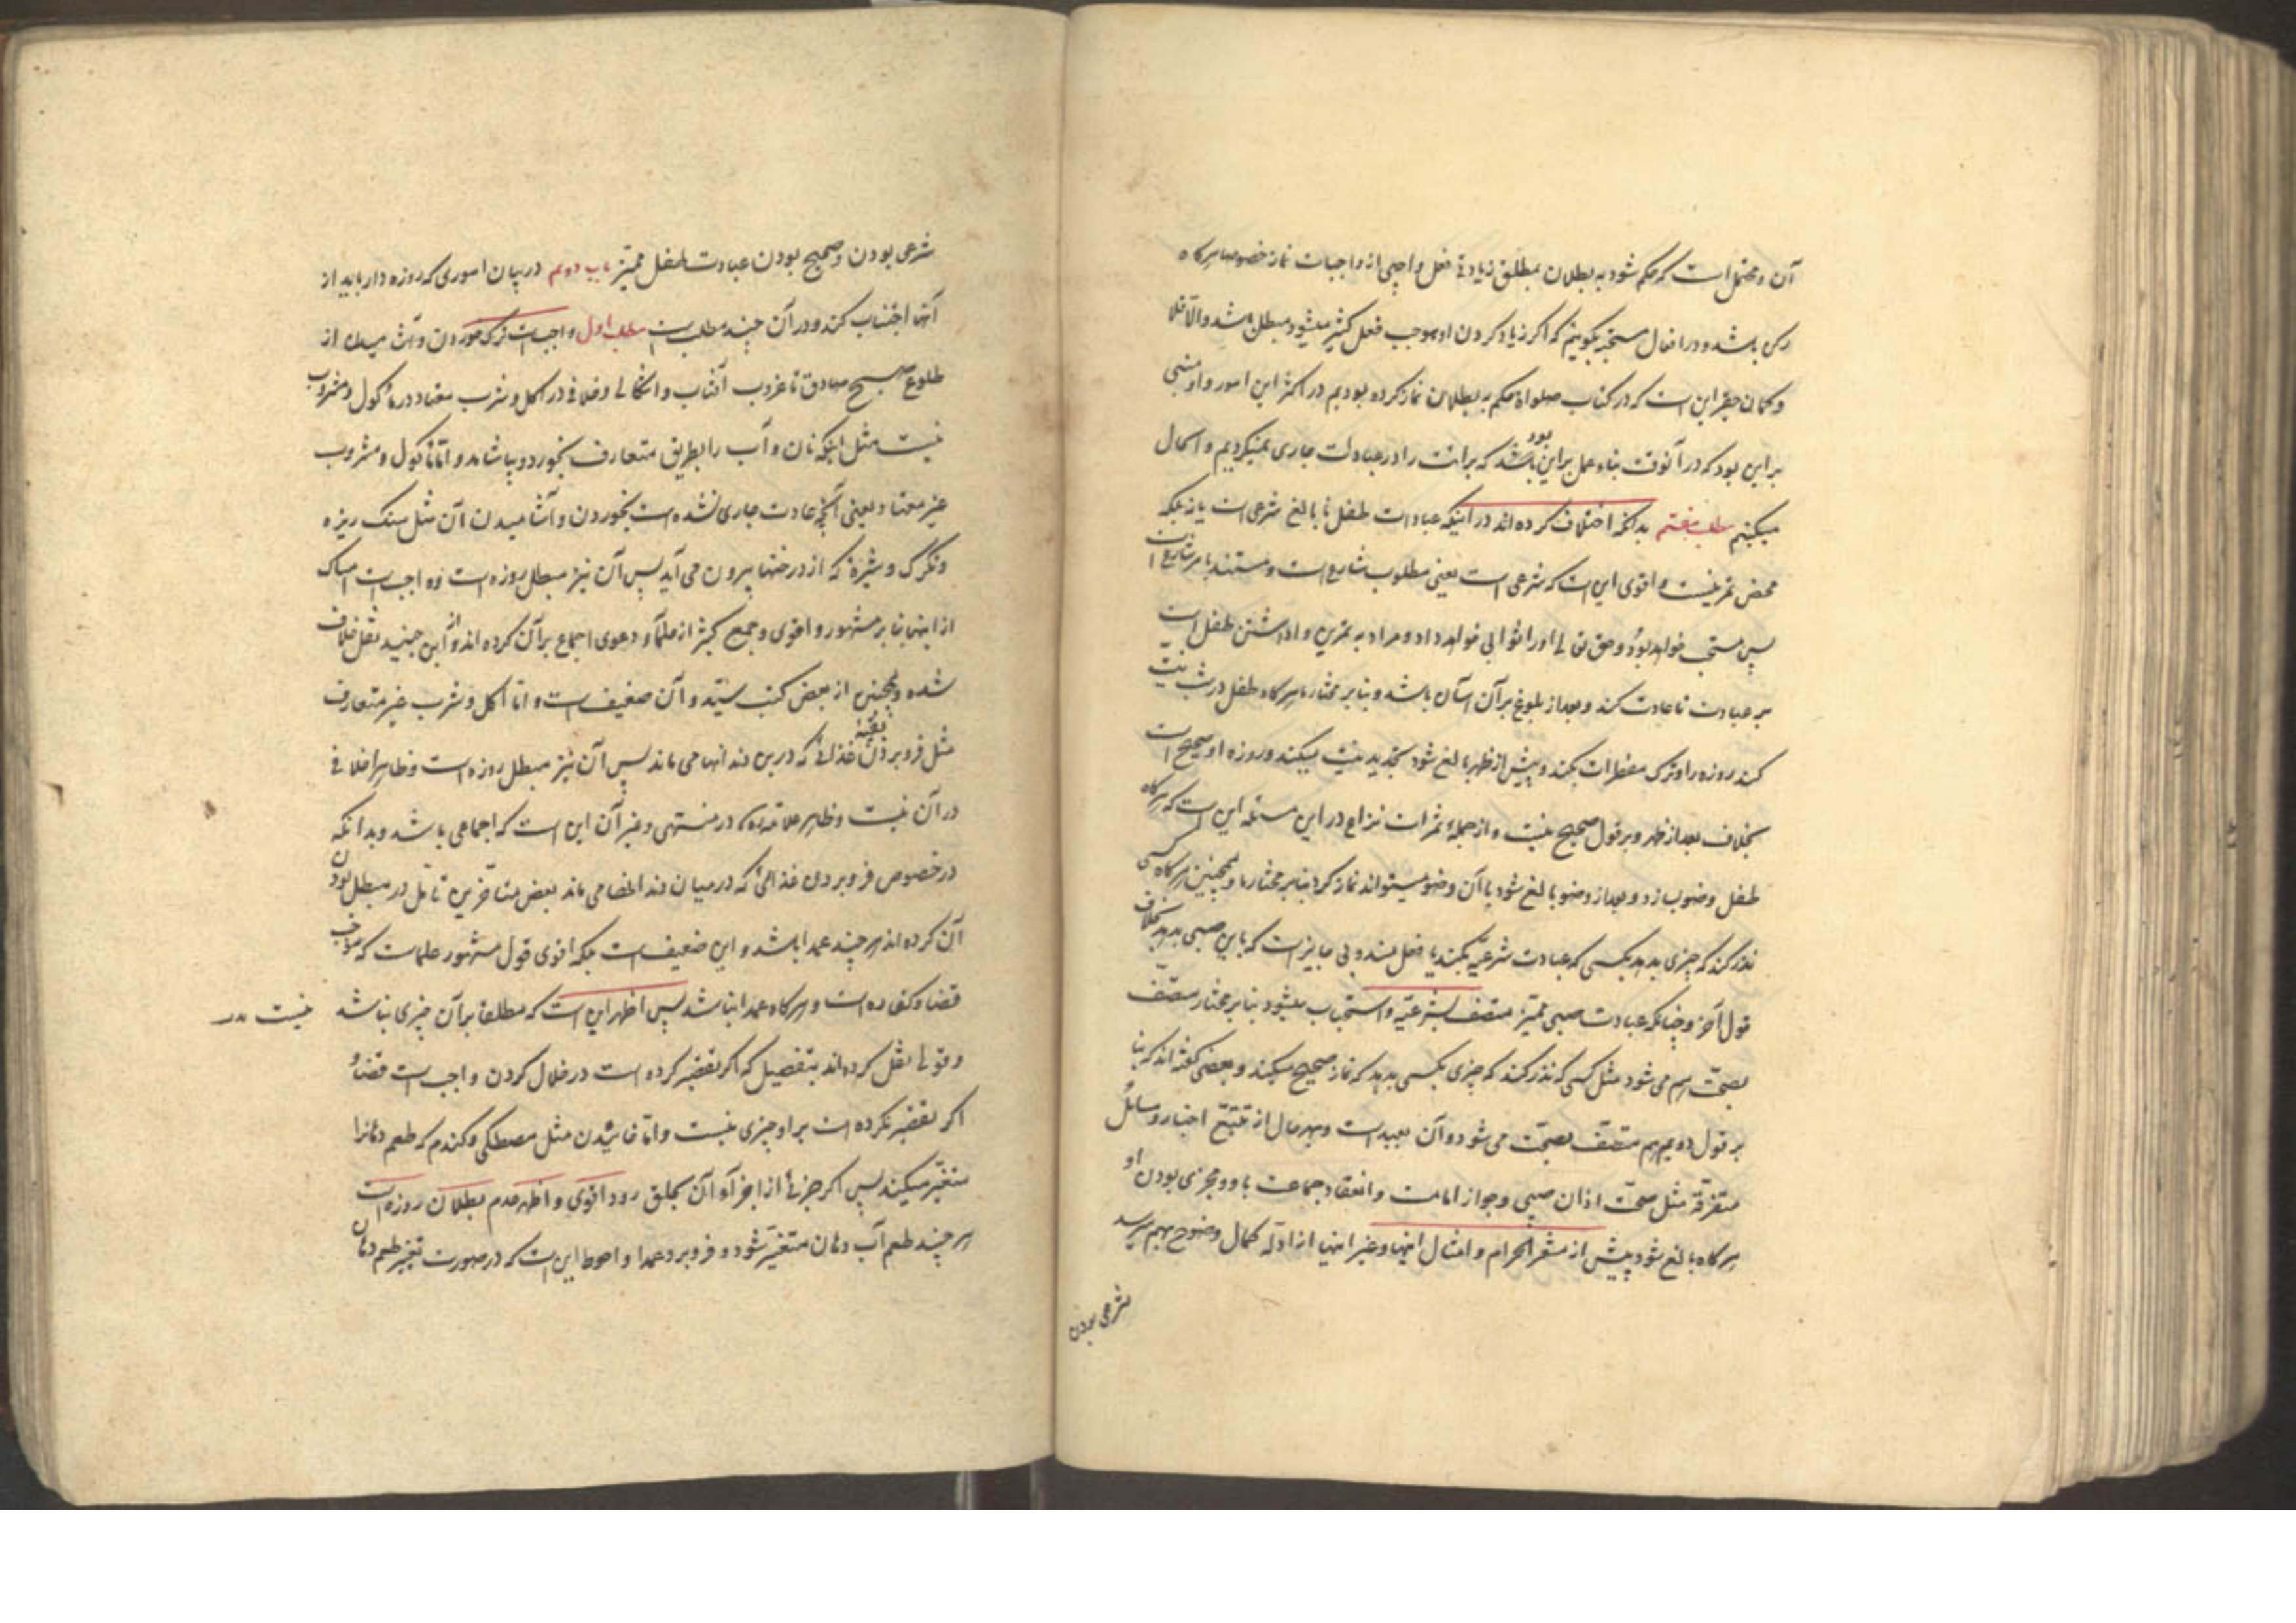 آن و محتمل است که حکم شود به بطلان بمطلق زیادتی فعل واجبی از واجبات نماز خصوصا هرکاه
رکن باشد و در افعال مستحبه بکوییم که اکر زیاد کردن او موجب فعل کثیر میشود مبطل باشد و الا فلا
و کمان حقیر این است که در کتاب صلواة حکم به بطلان نماز کرده بودیم در اکثر این امور و او مبنی
بر این بود که در آنوقت بناء عمل بر این بود باشد که برائت را در عبادات جاری نمیکردیم و الحال
میکنیم مطلب هفتم بدانکه اختلاف کرده اند در اینکه عبادات طفل نا بالغ شرعی است یا نه بلکه
محض تمرینست و اقوی این است که شرعی است یعنی مطلوب شارع است و مستند بامر شارع است
پس مستحب خواهد بود و حق تعالی او را ثوابی خواهد داد و مراد به تمرین واداشتن طفل است
بر عبادت تا عادت کند و بعد از بلوغ بر آن آسان باشد و بنا بر مختار ما هرکاه طفل در شب نیت
کند روزه را و ترک مفطرات بکند و پیش از ظهر بالغ شود تجدید نیت میکند و روزه او صحیح است
بخلاف بعد از ظهر و بر قول صحیح نیست و از جمله ثمرات نزاع در این مسئله این است که هرکاه
طفل وضو بسازد و بعد از وضو بالغ شود با آن وضو میتواند نماز کرد بنا بر مختار ما و همچنین هرکاه کسی
نذر کند که چیزی بدهد بکسی که عبادت شرعیه بکند یا فعل مندوبی جایز است که باین صبی بدهد بخلاف
قول آخر و چنانکه عبادت صبی ممیز متصف بشرعیه و استحباب میشود بنا بر مختار متصف
بصحت هم می شود مثل کسی که نذر کند که چیزی بکسی بدهد که نماز صحیح میکند و بعضی کفته اند که بنا
بر قول دویم هم متصف بصحت می شود و آن بعید است و بهر حال از تتبع اخبار و مسائل
متفرقه مثل صحت اذان صبی و جواز امامت و انعقاد جماعت باو و مجزی بودن او
هرکاه بالغ شود پیش از مشعر الحرام و امثال اینها و غیر اینها از ادله کمال وضوح بهم میرسد
شرعی بودن
شرعی بودن و صحیح بودن عبادت طفل ممیز باب دویم در بیان اموری که روزه دار باید از
آنها اجتناب کند و در آن چند مطلب است مطلب اول واجبست ترک خوردن و آشامیدن از
طلوع صبح صادق تا غروب آفتاب و اشکالی و خلافی در اکل و شرب معتاد در ماکول و مشروب
نیست مثل اینکه نان و آب را بطریق متعارف بخورد و بیاشامد و اما ماکول و مشروب
غیر معتاد یعنی آنچه عادت جاری نشده است بخوردن و آشامیدن آن مثل سنک ریزه
و تکرک و شیرهٔ که از درختها بیرون می آید پس آن نیز مبطل روزه است و واجب است امساک
از اینها بنا بر مشهور و اقوی و جمع کثیر از علما دعوی اجماع بر آن کرده اند و از ابن جنید نقل خلاف
شده و همچنین از بعض کتب سید و آن ضعیف است و اما اکل و شرب غیر متعارف
مثل فرو بردن بقیه غذائی که در بن دندانها می ماند پس آن نیز مبطل روزه است و ظاهرا خلافی
در آن نیست و ظاهر علامه ره در منتهی و غیر آن این است که اجماعی باشد و بدانکه
در خصوص فرو بردن غذائی که در میان دندانها می ماند بعض متاخرین تامل در مبطل بودن
آن کرده اند هر چند عمدا باشد و این ضعیف است بلکه اقوی قول مشهور علماست که موجب
قضا و کفاره است و هرکاه عمدا نباشد پس اظهر این است که مطلقا بر آن چیزی نباشد
نیست
و قولی نقل کرده اند بتفصیل که اکر تقصیر کرده است در خلال کردن واجب است قضا و
اکر تقصیر نکرده است بر او چیزی نیست و اما خائیدن مثل مصطکی و کندم که طعم دهانرا
متغیر میکند پس اکر جزئی از اجزآء آن بحلق رود اقوی و اظهر عدم بطلان روزه است
هر چند طعم آب دهان متغیر شود و فرو برد عمدا و احوط این است که در صورت تغییر طعم دهان